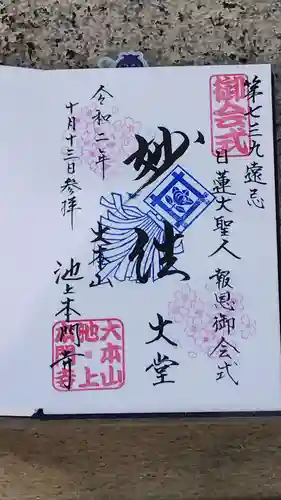 第七三九遠忌
御会式
日蓮大聖人 報恩御会式
妙法
大堂
令和二年
十月十三日参拝
大本山
池上本門寺
大本山
池上
本門寺